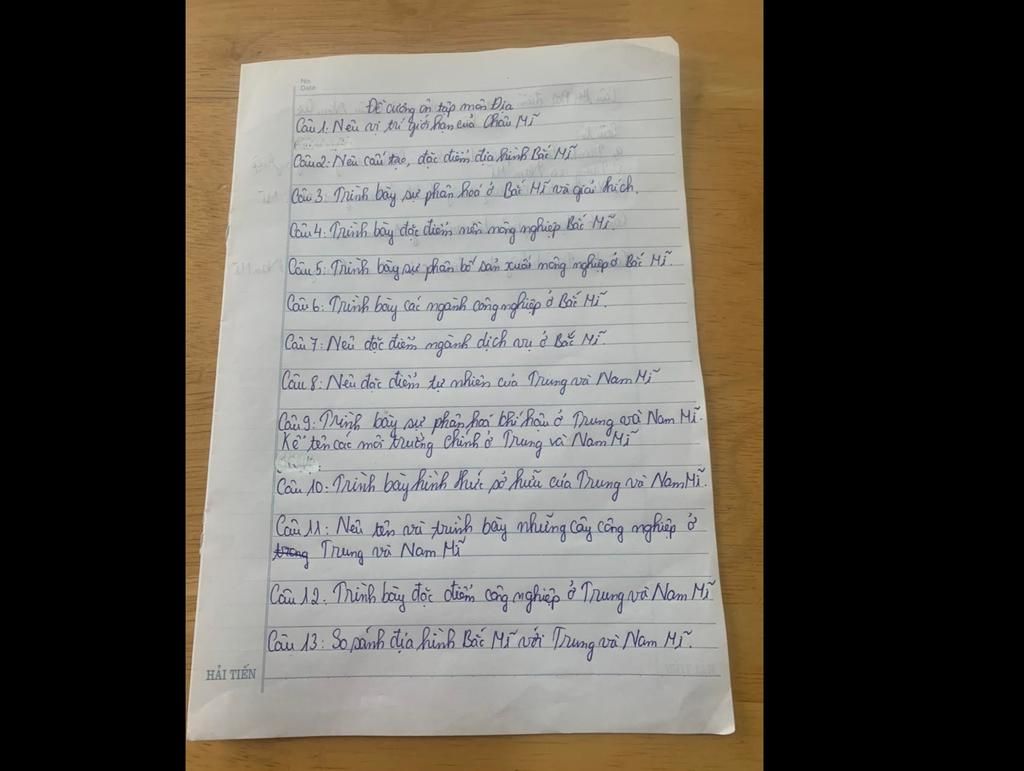 No.
Date
Đề cương ôn tập môn Địa
Câu 1: Nêu vị trí giới hạn của Châu Mĩ
Câu 2: Nêu cấu tạo, đặc điểm địa hình Bắc Mĩ
Câu 3: Trình bày sự phân hoá ở Bắc Mĩ và giải thích.
Câu 4: Trình bày đặc điểm nền nông nghiệp Bắc Mĩ.
Câu 5: Trình bày sự phân bố sản xuất nông nghiệp ở Bắc Mĩ.
Câu 6: Trình bày các ngành công nghiệp ở Bắc Mĩ.
Câu 7: Nêu đặc điểm ngành dịch vụ ở Bắc Mĩ.
Câu 8: Nêu đặc điểm tự nhiên của Trung và Nam Mĩ
Câu 9: Trình bày sự phân hoá khí hậu ở Trung và Nam Mĩ.
Kể tên các môi trường chính ở Trung và Nam Mĩ
Câu 10: Trình bày hình thức sở hữu của Trung và Nam Mĩ.
Câu 11: Nêu tên và trình bày những cây công nghiệp ở
Trung và Nam Mĩ
Câu 12: Trình bày đặc điểm công nghiệp ở Trung và Nam Mĩ
Câu 13: So sánh địa hình Bắc Mĩ với Trung và Nam Mĩ.
HẢI TIẾN